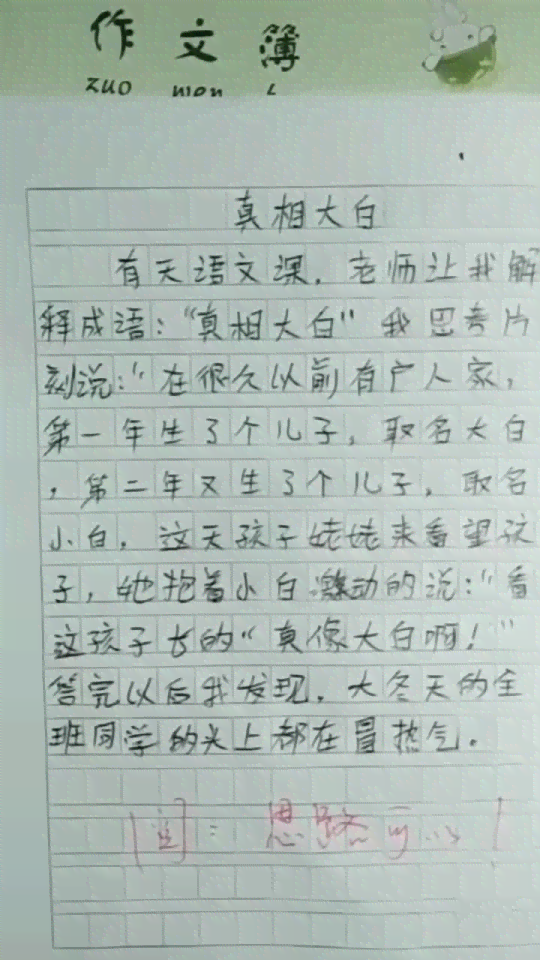 作文簿
zuo wen
真相大白
有天语文课，老师让我解
释成语：“真相大白”我思考片
刻说：“在很久以前有户人家，
第一年生了个儿子，取名大白
，第二年又生了个儿子，取名
小白，这天孩子姥姥来看望孩
子，她抱着小白激动的说：“看
这孩子长的“真像大白啊！”
答完以后我发现，大冬天的全
班同学的头上都在冒热气。
思路可以！